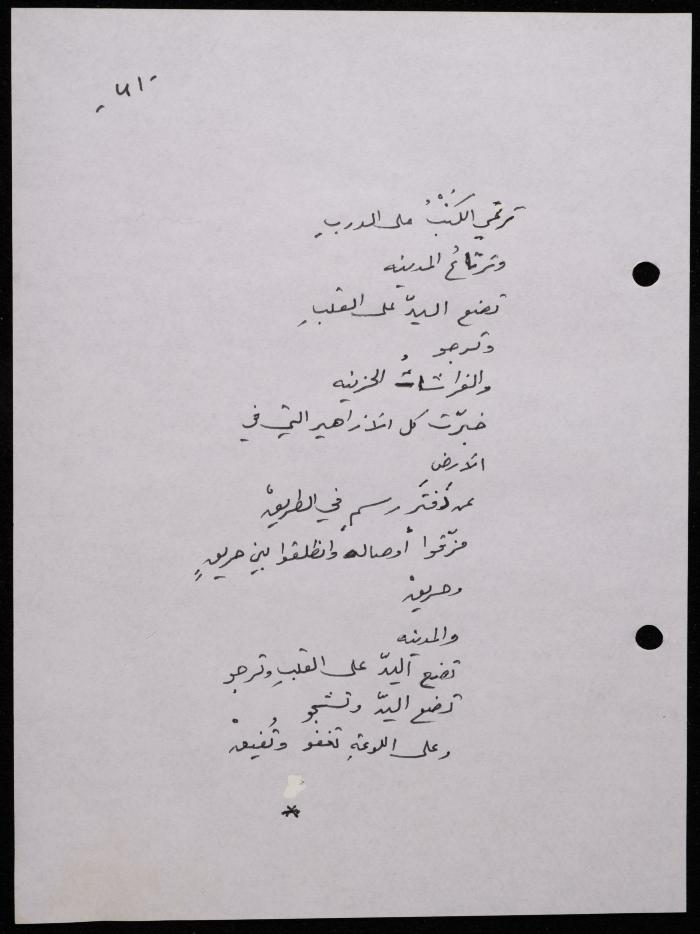 - ٤١ -
ترتمي الكُتْبُ على الدربِ
وترتاعُ المدينه
تضع اليدّ على القلبِ
وترجو
والفراشاتُ الحزينه
خبّرت كل الازاهير التي في
الارضِ
عن دَفترَ رسمٍ في الطريقْ
مزّقوا أوصاله وانطلقوا بين حريقٍ
وحريقْ
والمدينه
تضع اليدّ على القلبِ وترجو
تضع اليدّ وتشجو
وعلى اللوعةِ تغفو وتُفيقْ
*